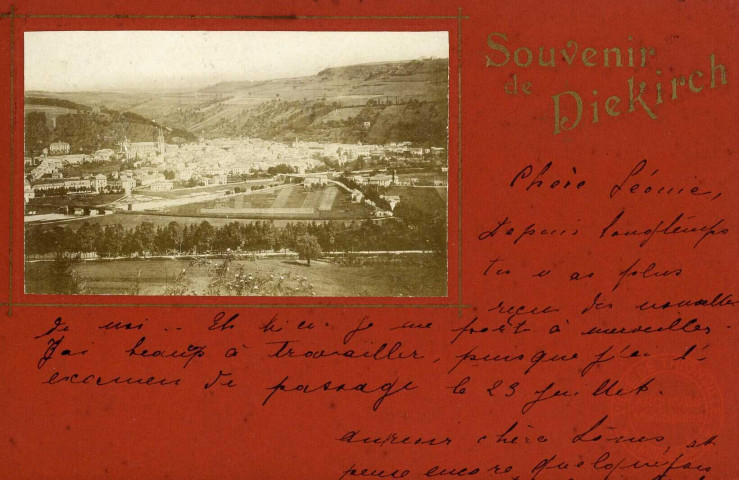 Souvenir
de Diekirch
Chère Léonie,
Depuis longtemps
tu n'as plus
reçu des nouvelles
de moi... Eh bien je me porte à merveilles.
J'ai beaup à travailler, puisque j'ai l'
examen de passage le 23 juillet.
chère
pense encore quelquefois